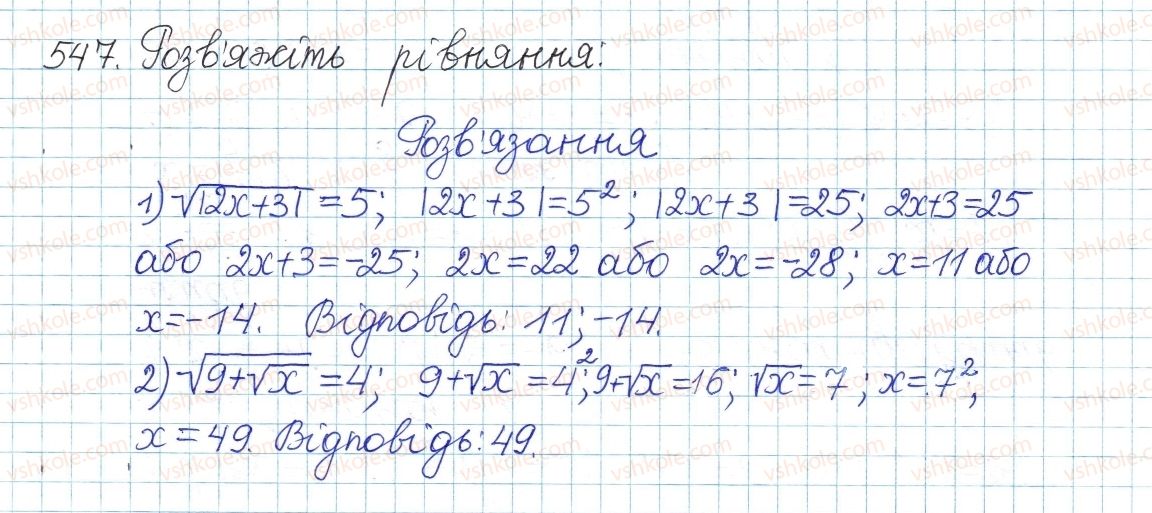 547. Розв'яжіть рівняння:
Розв'язання
1) √|2x+3| = 5; |2x+3| = 5²; |2x+3| = 25; 2x+3=25
або 2x+3=-25; 2x=22 або 2x=-28; x=11 або
x=-14. Відповідь: 11; -14.
2) √(9+√x) = 4; 9+√x = 4²; 9+√x = 16; √x = 7; x = 7²;
x = 49. Відповідь: 49.